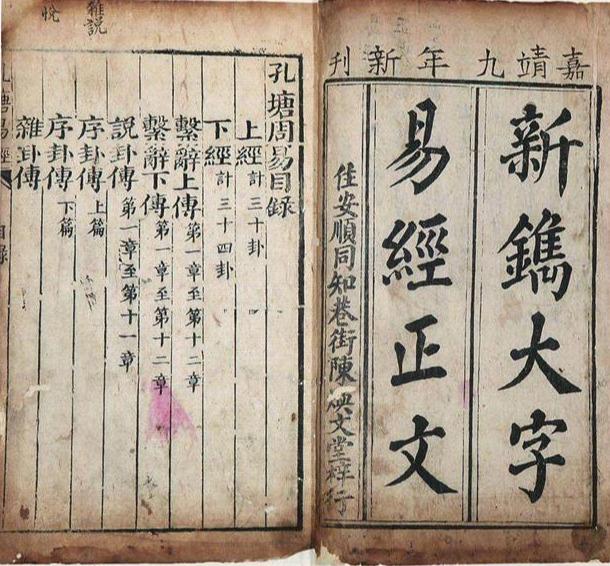 嘉靖九年新刊
新鐫大字
易經正文
住安順同知巷街陳典文堂梓行
孔塘周易目錄
上經計三十卦
下經計三十四卦
繫辭上傳第一章至第十二章
繫辭下傳第一章至第十二章
說卦傳第一章至第十一章
序卦傳上篇
序卦傳下篇
雜卦傳
孔塘易經
目錄
雜說